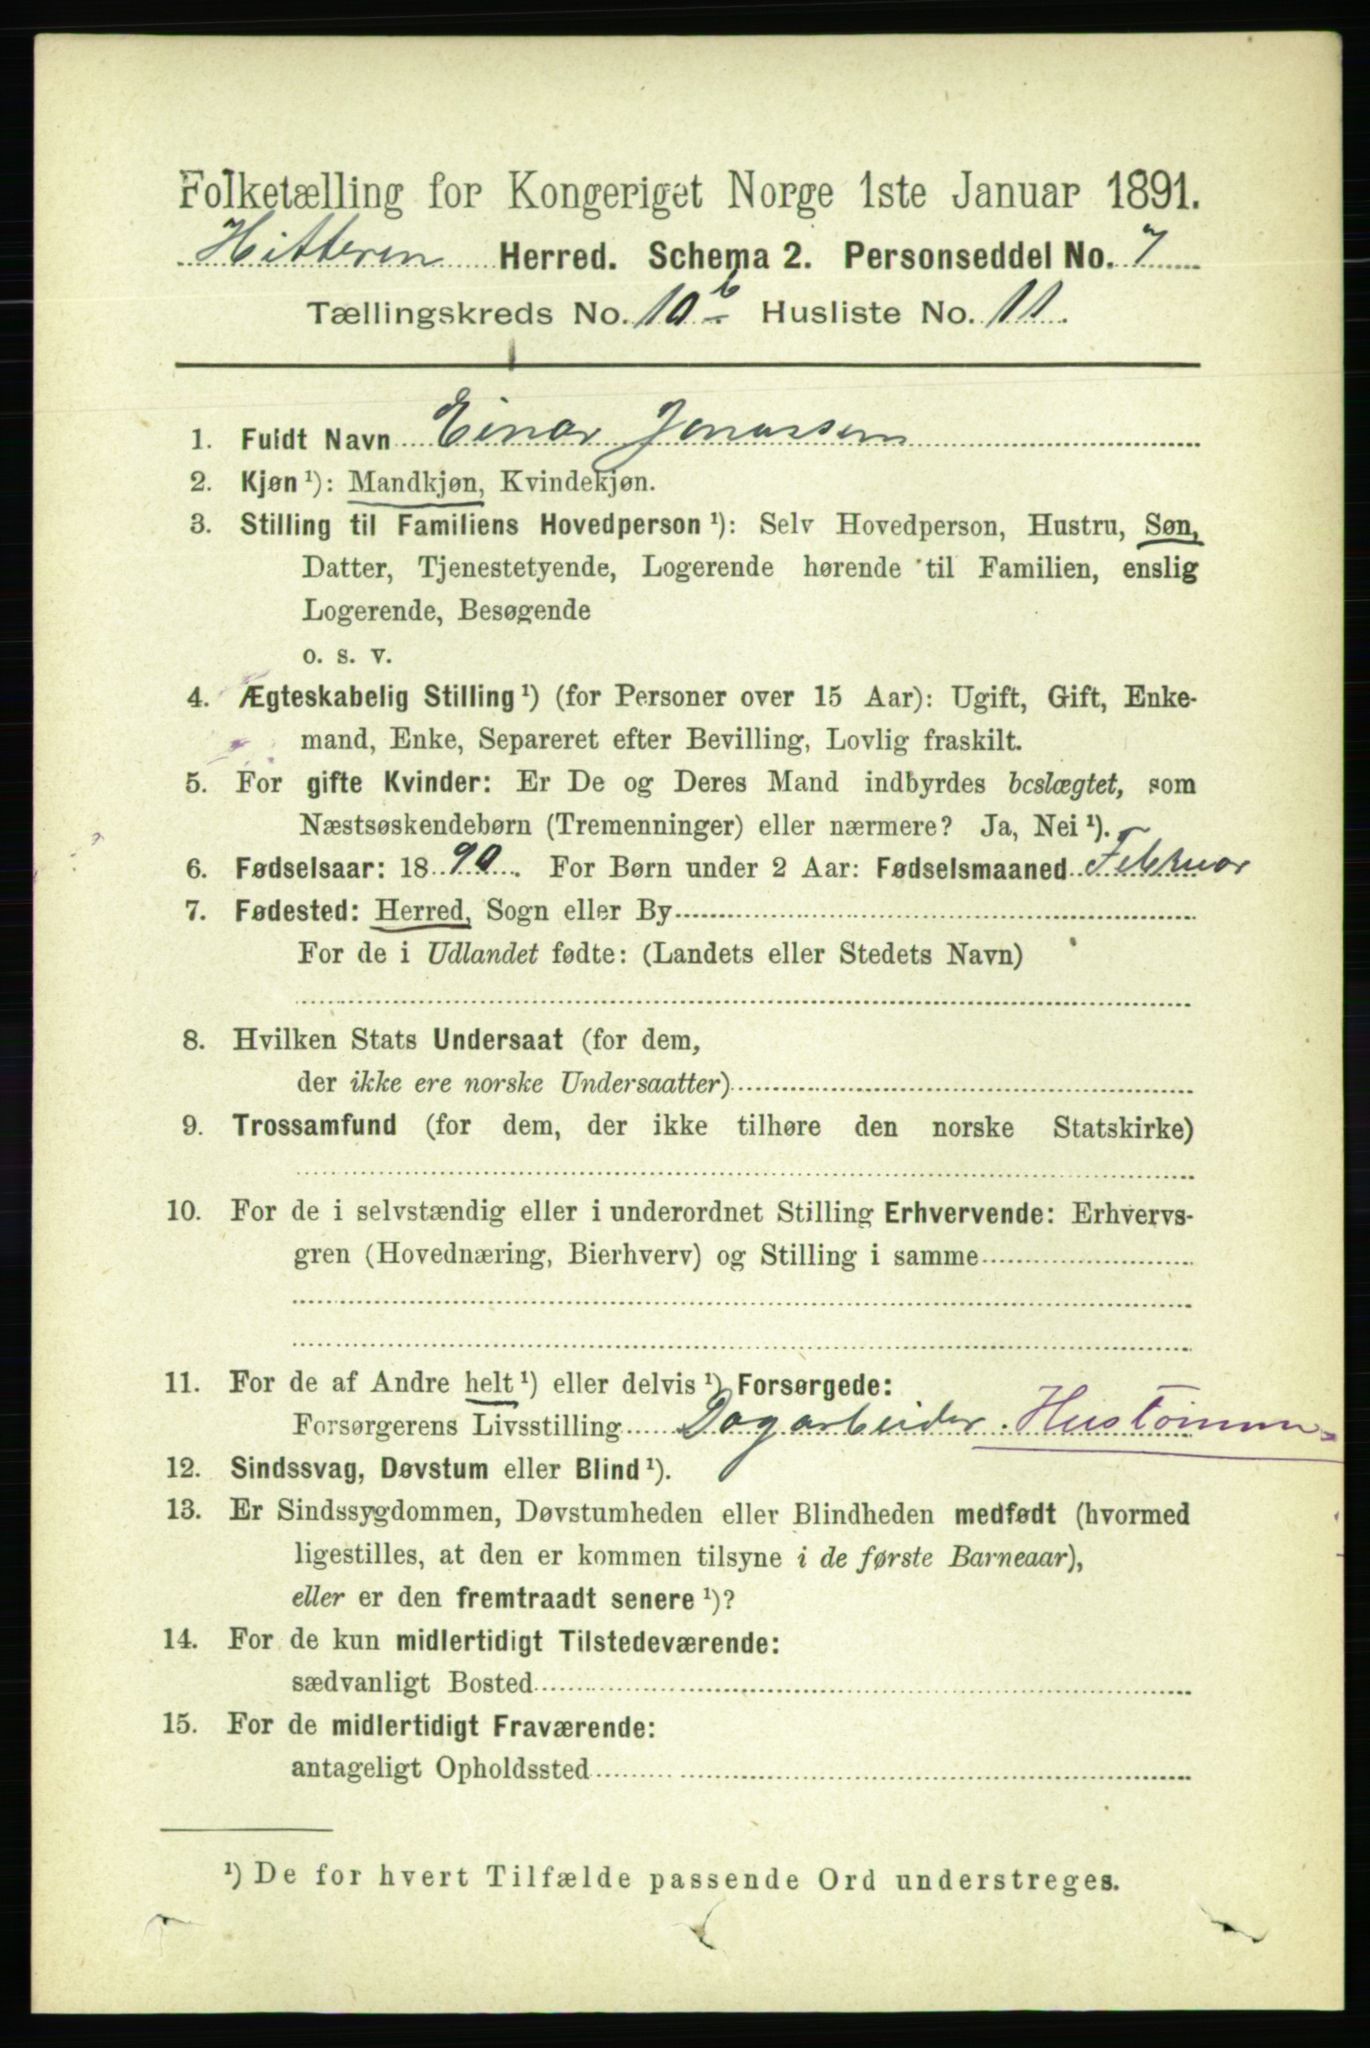 Folketælling for Kongeriget Norge 1ste Januar 1891.
Hitteren Herred. Schema 2. Personseddel No. 7
Tællingskreds No. 10 b Husliste No. 11.
1. Fuldt Navn Einar Jonassen
2. Kjøn ¹): Mandkjøn, Kvindekjøn.
3. Stilling til Familiens Hovedperson ¹): Selv Hovedperson, Hustru, Søn,
Datter, Tjenestetyende, Logerende hørende til Familien, enslig
Logerende, Besøgende
o. s. v.
4. Ægteskabelig Stilling ¹) (for Personer over 15 Aar): Ugift, Gift, Enke-
mand, Enke, Separeret efter Bevilling, Lovlig fraskilt.
5. For gifte Kvinder: Er De og Deres Mand indbyrdes beslægtet, som
Næstsøskendebørn (Tremenninger) eller nærmere? Ja, Nei ¹).
6. Fødselsaar: 18 90. For Børn under 2 Aar: Fødselsmaaned Februar
7. Fødested: Herred, Sogn eller By
For de i Udlandet fødte: (Landets eller Stedets Navn)
8. Hvilken Stats Undersaat (for dem,
der ikke ere norske Undersaatter)
9. Trossamfund (for dem, der ikke tilhøre den norske Statskirke)
10. For de i selvstændig eller i underordnet Stilling Erhvervende: Erhvervs-
gren (Hovednæring, Bierhverv) og Stilling i samme
11. For de af Andre helt ¹) eller delvis ¹) Forsørgede:
Forsørgerens Livsstilling Dagarbeider.
12. Sindssvag, Døvstum eller Blind ¹).
13. Er Sindssygdommen, Døvstumheden eller Blindheden medfødt (hvormed
ligestilles, at den er kommen tilsyne i de første Barneaar),
eller er den fremtraadt senere ¹)?
14. For de kun midlertidigt Tilstedeværende:
sædvanligt Bosted
15. For de midlertidigt Fraværende:
antageligt Opholdssted
¹) De for hvert Tilfælde passende Ord understreges.